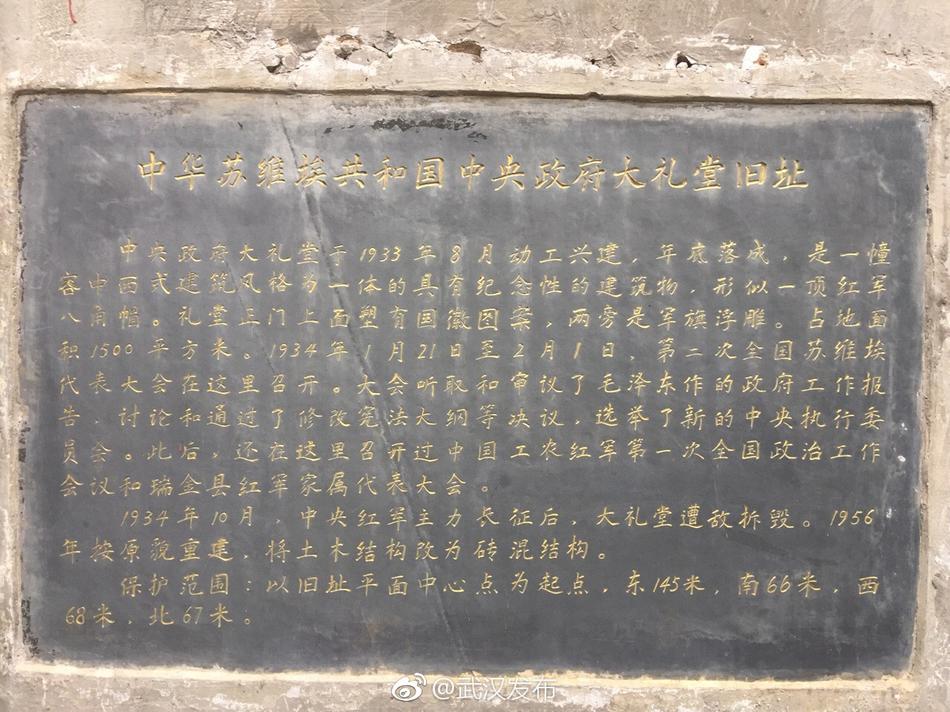 中华苏维埃共和国中央政府大礼堂旧址
中央政府大礼堂于1933年8月动工兴建，年底落成，是一幢
容中西式建筑风格为一体的具有纪念性的建筑物，形似一顶红军
八角帽。礼堂正门上面塑有国徽图案，两旁是军旗浮雕。占地面
积1500平方米。1934年1月21日至2月1日，第二次全国苏维埃
代表大会在这里召开。大会听取和审议了毛泽东作的政府工作报
告、讨论和通过了修改宪法大纲等决议，选举了新的中央执行委
员会。此后，还在这里召开过中国工农红军第一次全国政治工作
会议和瑞金县红军家属代表大会。
1934年10月，中央红军主力长征后，大礼堂遭敌拆毁。1956
年按原貌重建，将土木结构改为砖混结构。
保护范围：以旧址平面中心点为起点，东145米，南66米，西
68米，北67米。
@武汉发布